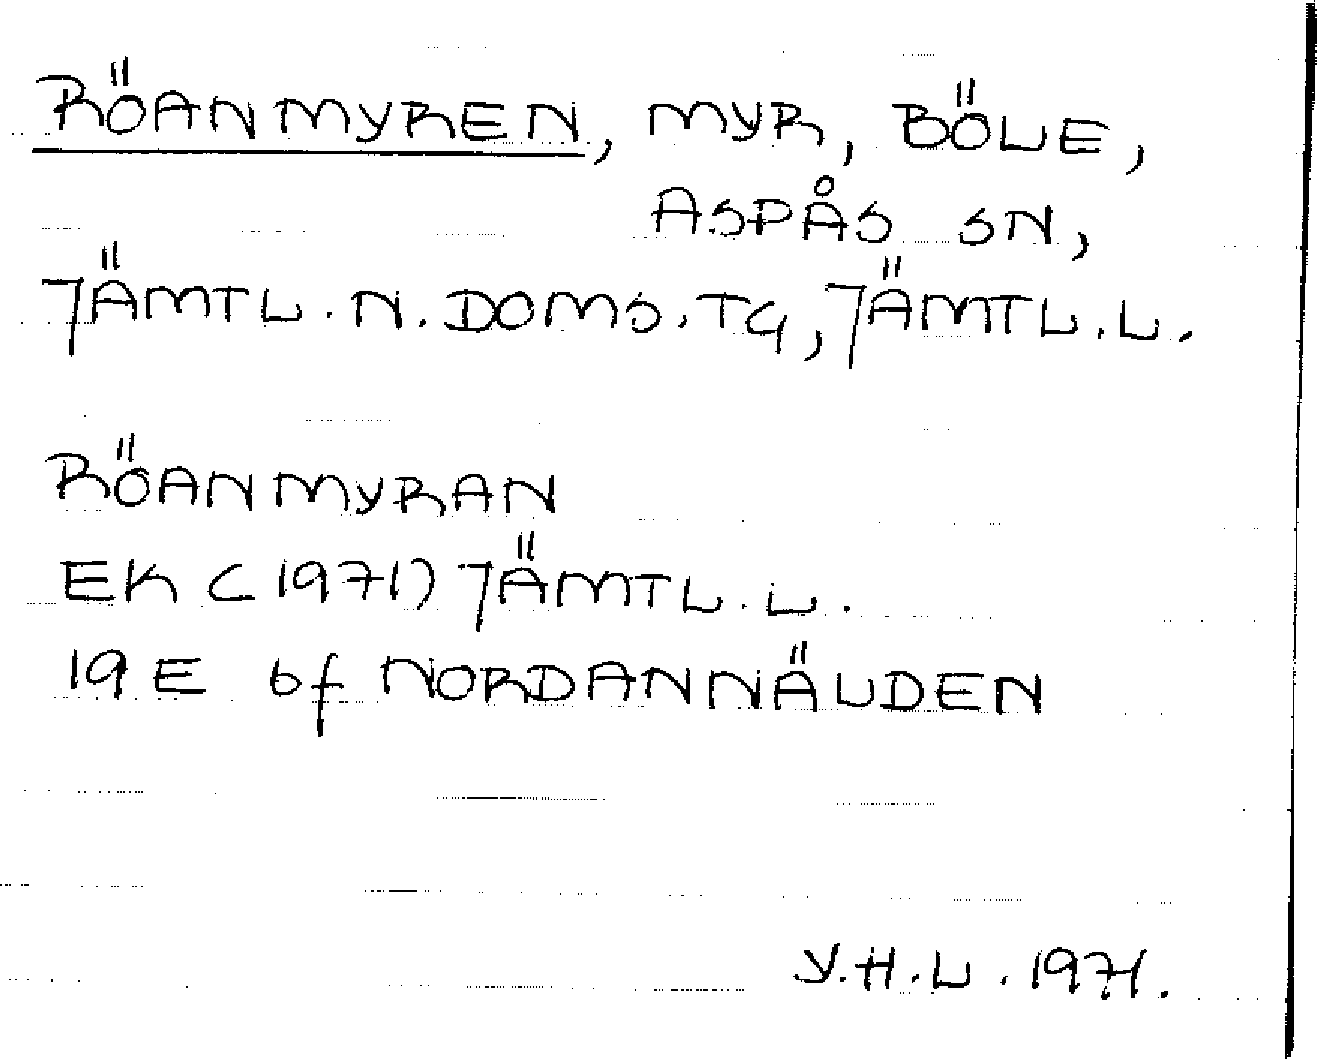 RÖANMYREN, MYR, BÖLE,
ASPÅS SN,
JÄMTL. N. DOMS. TG, JÄMTL. L.
RÖANMYRAN
EK (1971) JÄMTL. L.
19 E 6f NORDANNÄLDEN
Y.H.L. 1971.